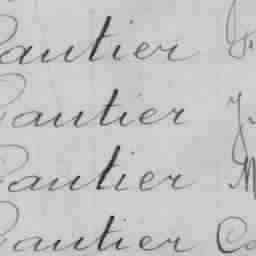 Gautier J.
Gautier J.
Gautier M
Gautier Ca